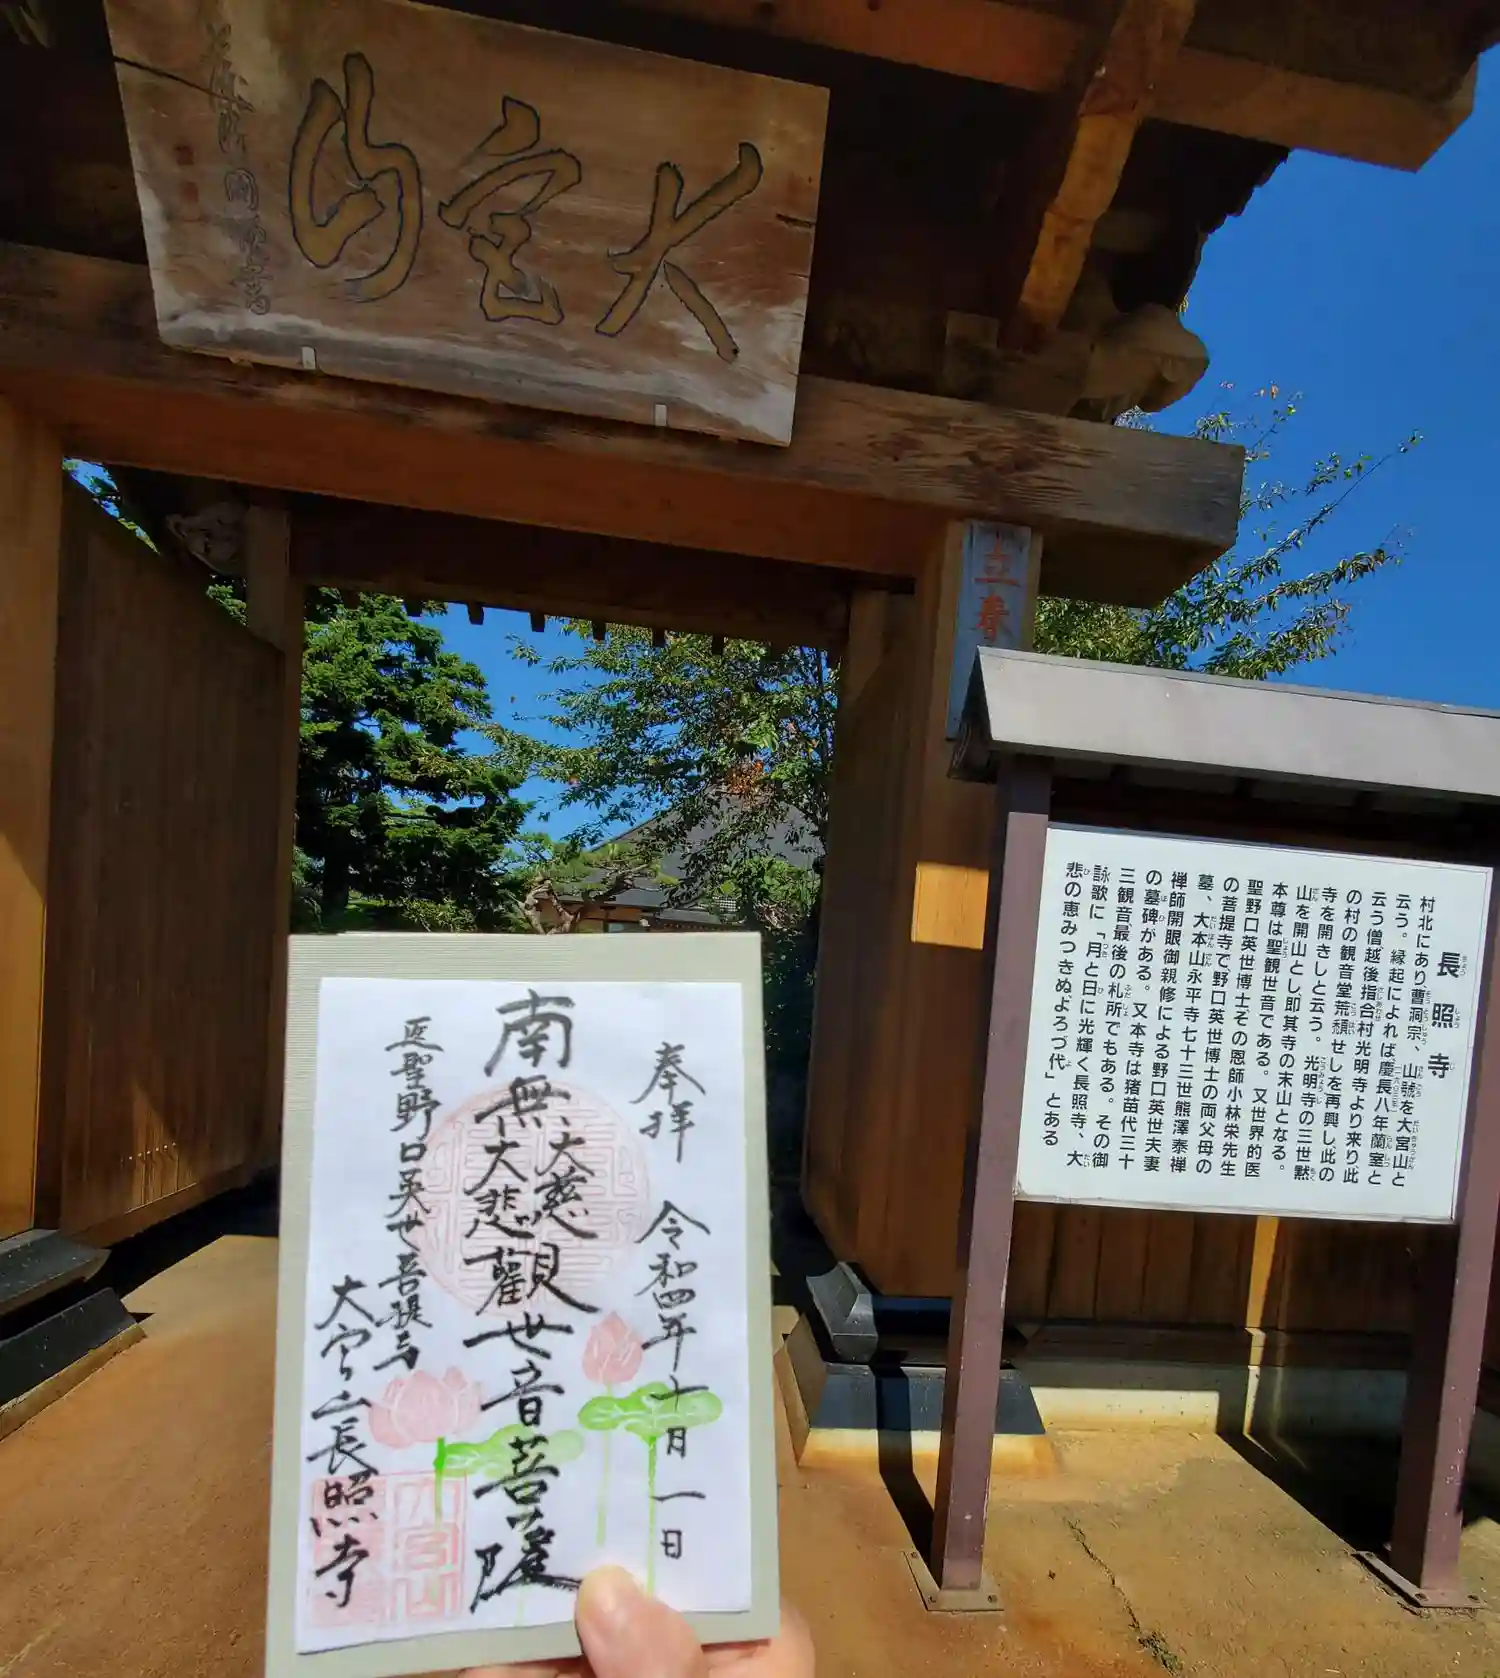 大宮山
立春
長照寺
村北にあり、曹洞宗、山號を大宮山と
云う。縁起によれば、慶長八年蘭室と
云う僧越後指合村光明寺より来り此
の村の観音堂荒頽せしを再興し、此の
寺を開きしと云う。光明寺の三世黙
山を開山とし即其寺の末山となる。
本尊は聖観世音である。又世界的医
聖野口英世博士、その恩師小林栄先生
の菩提寺で、野口英世博士の両父母の
墓、大本山永平寺七十三世熊澤泰禅
禅師開眼御親修による野口英世夫妻
の墓碑がある。又本寺は猪苗代三十
三観音最後の札所でもある。その御
詠歌に「月と日に光輝く長照寺、大
悲の恵みつきぬ、よろづ代」とある
奉拝 令和四年十月一日
南無大慈大悲觀世音菩薩
医聖野口英世菩提寺
大宮山長照寺